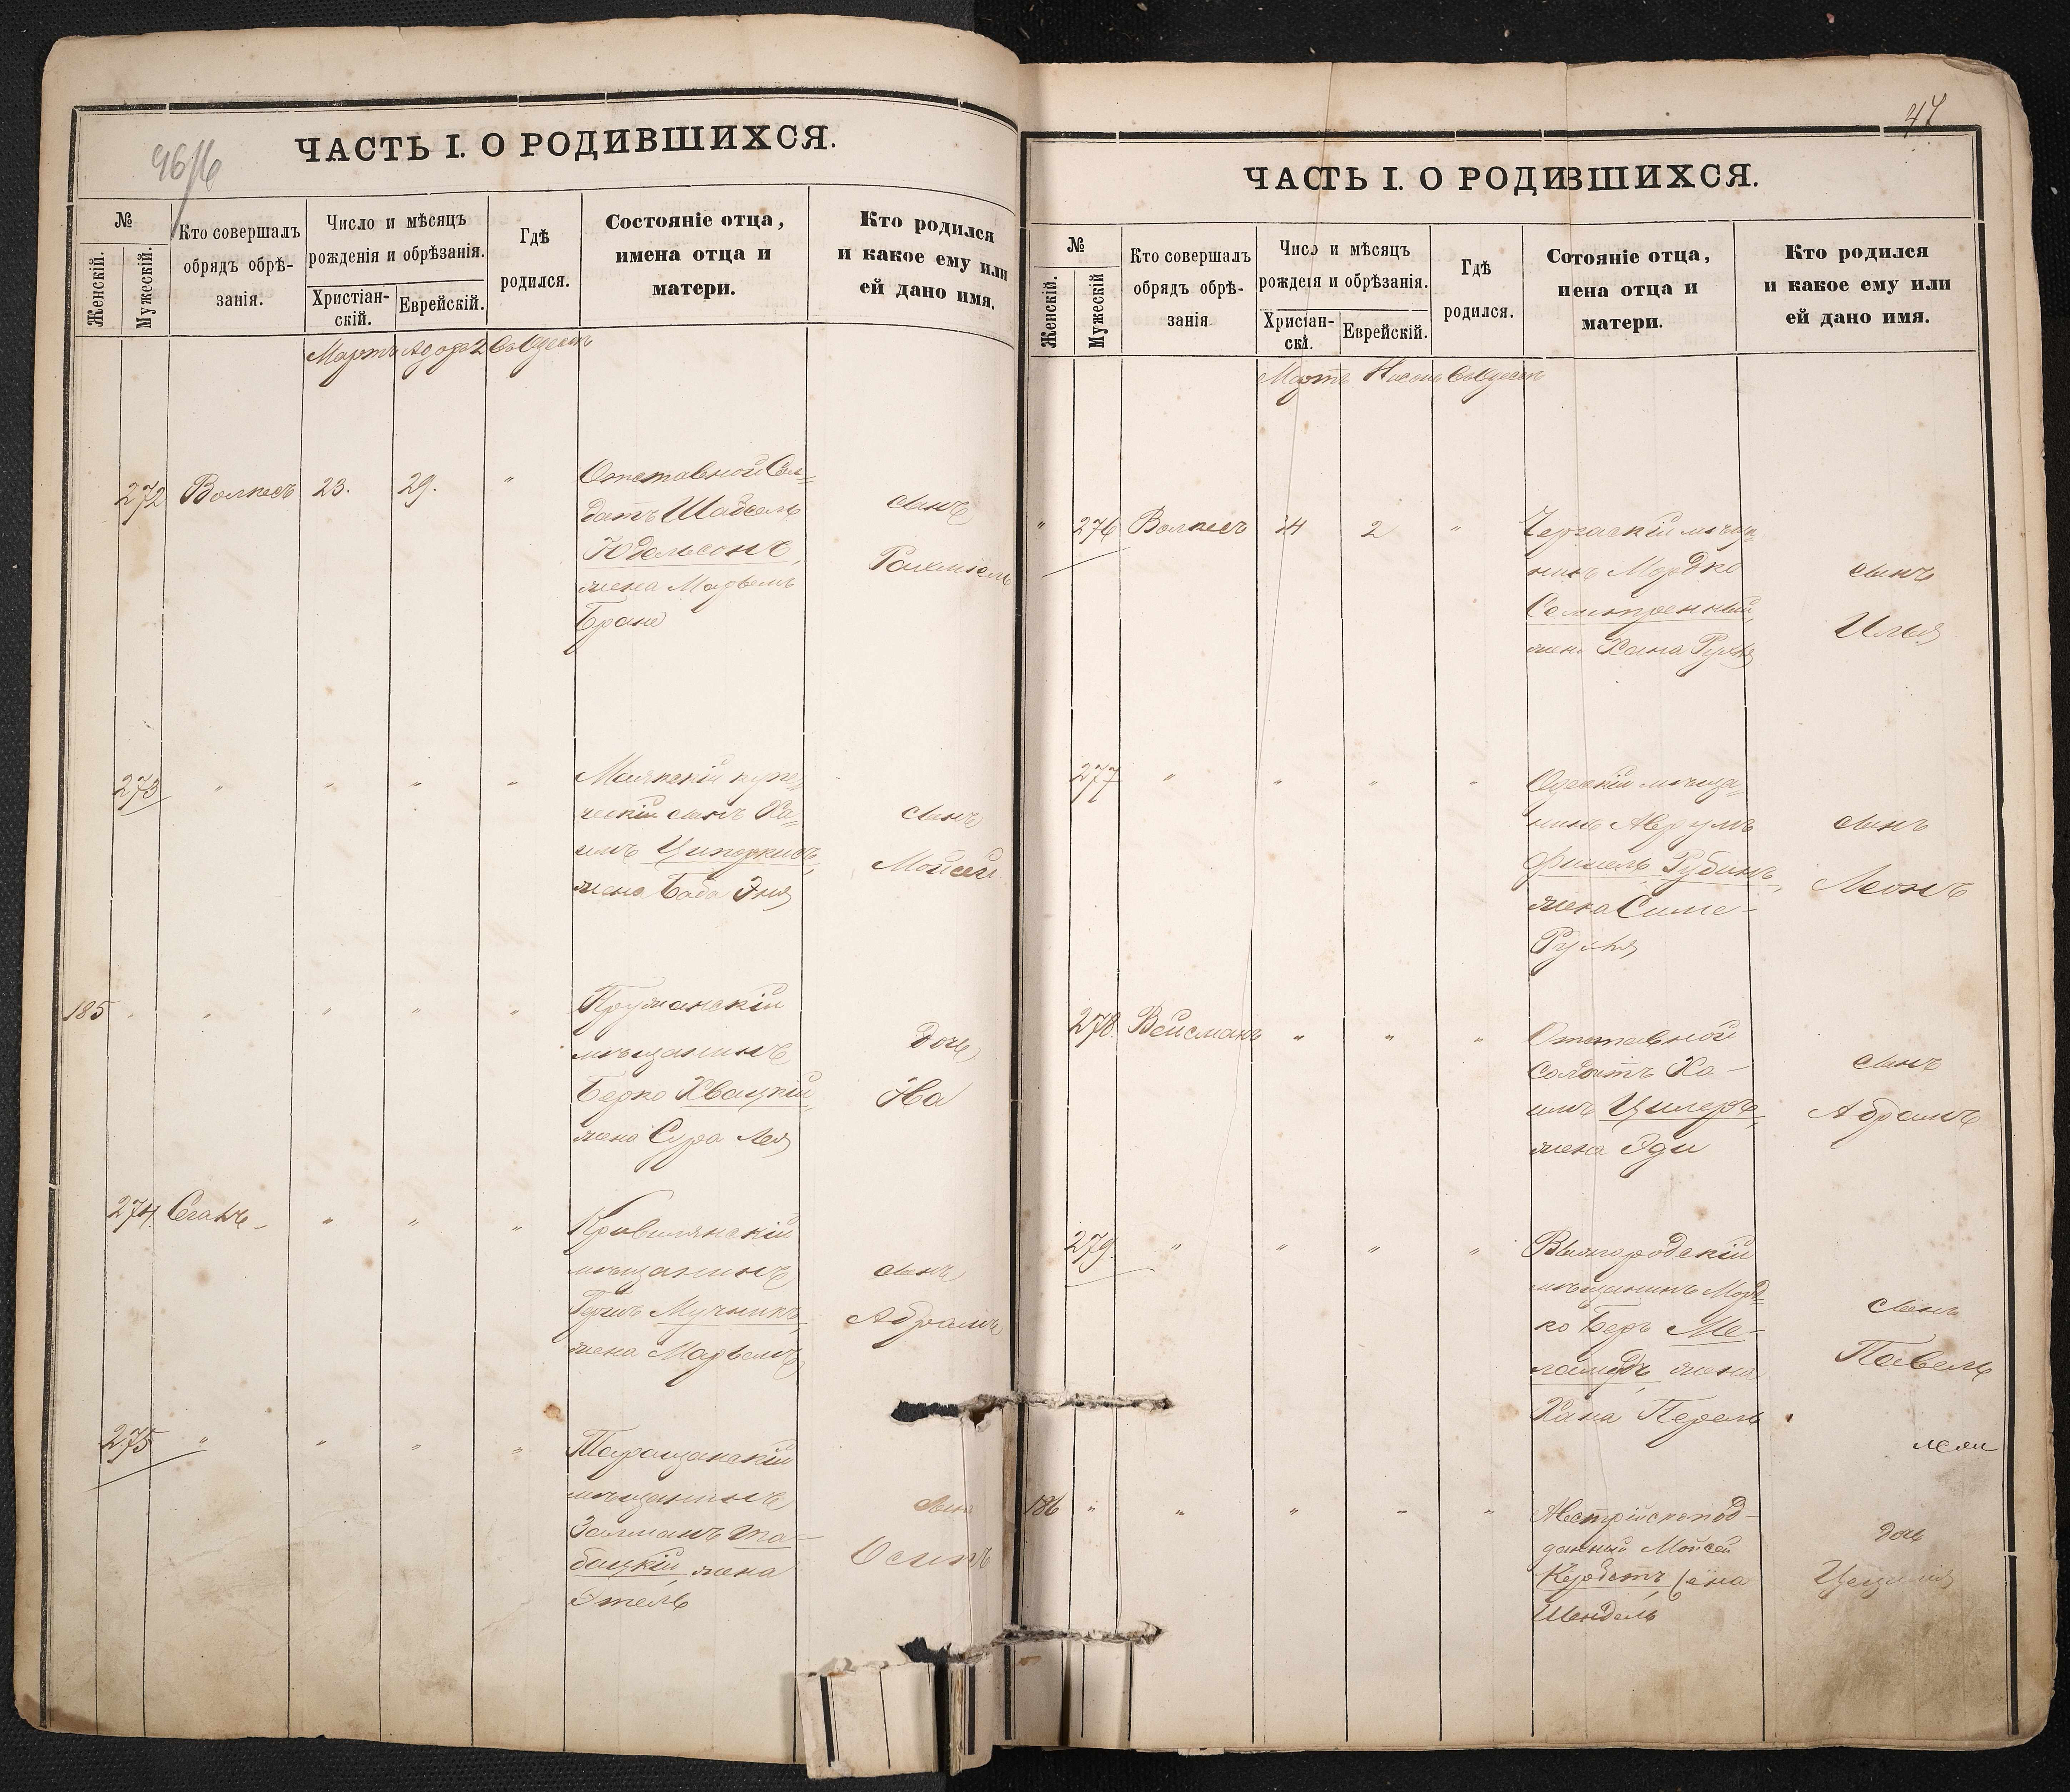 96/б
ЧАСТЬ I. О РОДИВШИХСЯ.
№
Женскій.
Мужескій.
Кто совершалъ
обрядъ обрѣ-
занія.
Число и мѣсяцъ
рожденія и обрѣзанія.
Христіан-
скій.
Еврейскій.
Гдѣ
родился.
Состояніе отца,
имена отца и
матери.
Кто родился
и какое ему или
ей дано имя.
Мартъ Адоръ 2 Въ Одессѣ
272 Волкесъ 23. 29. "
Отставной Сол=
датъ Шабсель
Юдельсонъ,
жена Марьемъ
Брана
сынъ
Рахміель
273 " " " "
Маякскій купе=
ческій сынъ Ха=
имъ Ципоркисъ,
жена Баба Эня
сынъ
Мойсей
185 " " " " "
Пружанскій
мѣщанинъ
Берко Хвацкій,
жена Сура Лея
дочь
Ита
274. Сегалъ " " "
мѣщанинъ
Гершъ Мучникъ,
жена Марьемъ
сынъ
Абрамъ
275 " " " "
Таращанскій
мѣщанинъ
Залманъ Та-
бацкій, жена
Этель
сынъ
Осипъ
47
ЧАСТЬ I. О РОДИВШИХСЯ.
№
Женскій.
Мужескій
Кто совершалъ
обрядъ обрѣ-
занія
Число и мѣсяцъ
рожденія и обрѣзанія.
Христіан-
скі.
Еврейскій.
Гдѣ
родился.
Сотояніе отца,
иена отца и
матери.
Кто родился
и какое ему или
ей дано имя.
Мартъ Нисонъ Въ Одессѣ
" 276 Волкесъ 24 2 "
нинъ Мордко
жена Хана Рухля
сынъ
Илья
277 " " " "
Одесскій мѣща=
нинъ Аврумъ
Фишель Рубинъ,
жена Симе-
Рухля
сынъ
Леонъ
278. Вейсманъ " " "
Отставной
Солдатъ Ха-
имъ Цилеръ,
жена Эди
сынъ
Абрамъ
279. " " " "
Вышгородскій
мѣщанинъ Морд=
ко Беръ Ме-
ламедъ, жена
Хана Перель
сынъ
Павель
186 " " " " "
Австрійскопод-
данный Мойсей
жена
Шендель
дочь
Цецилія